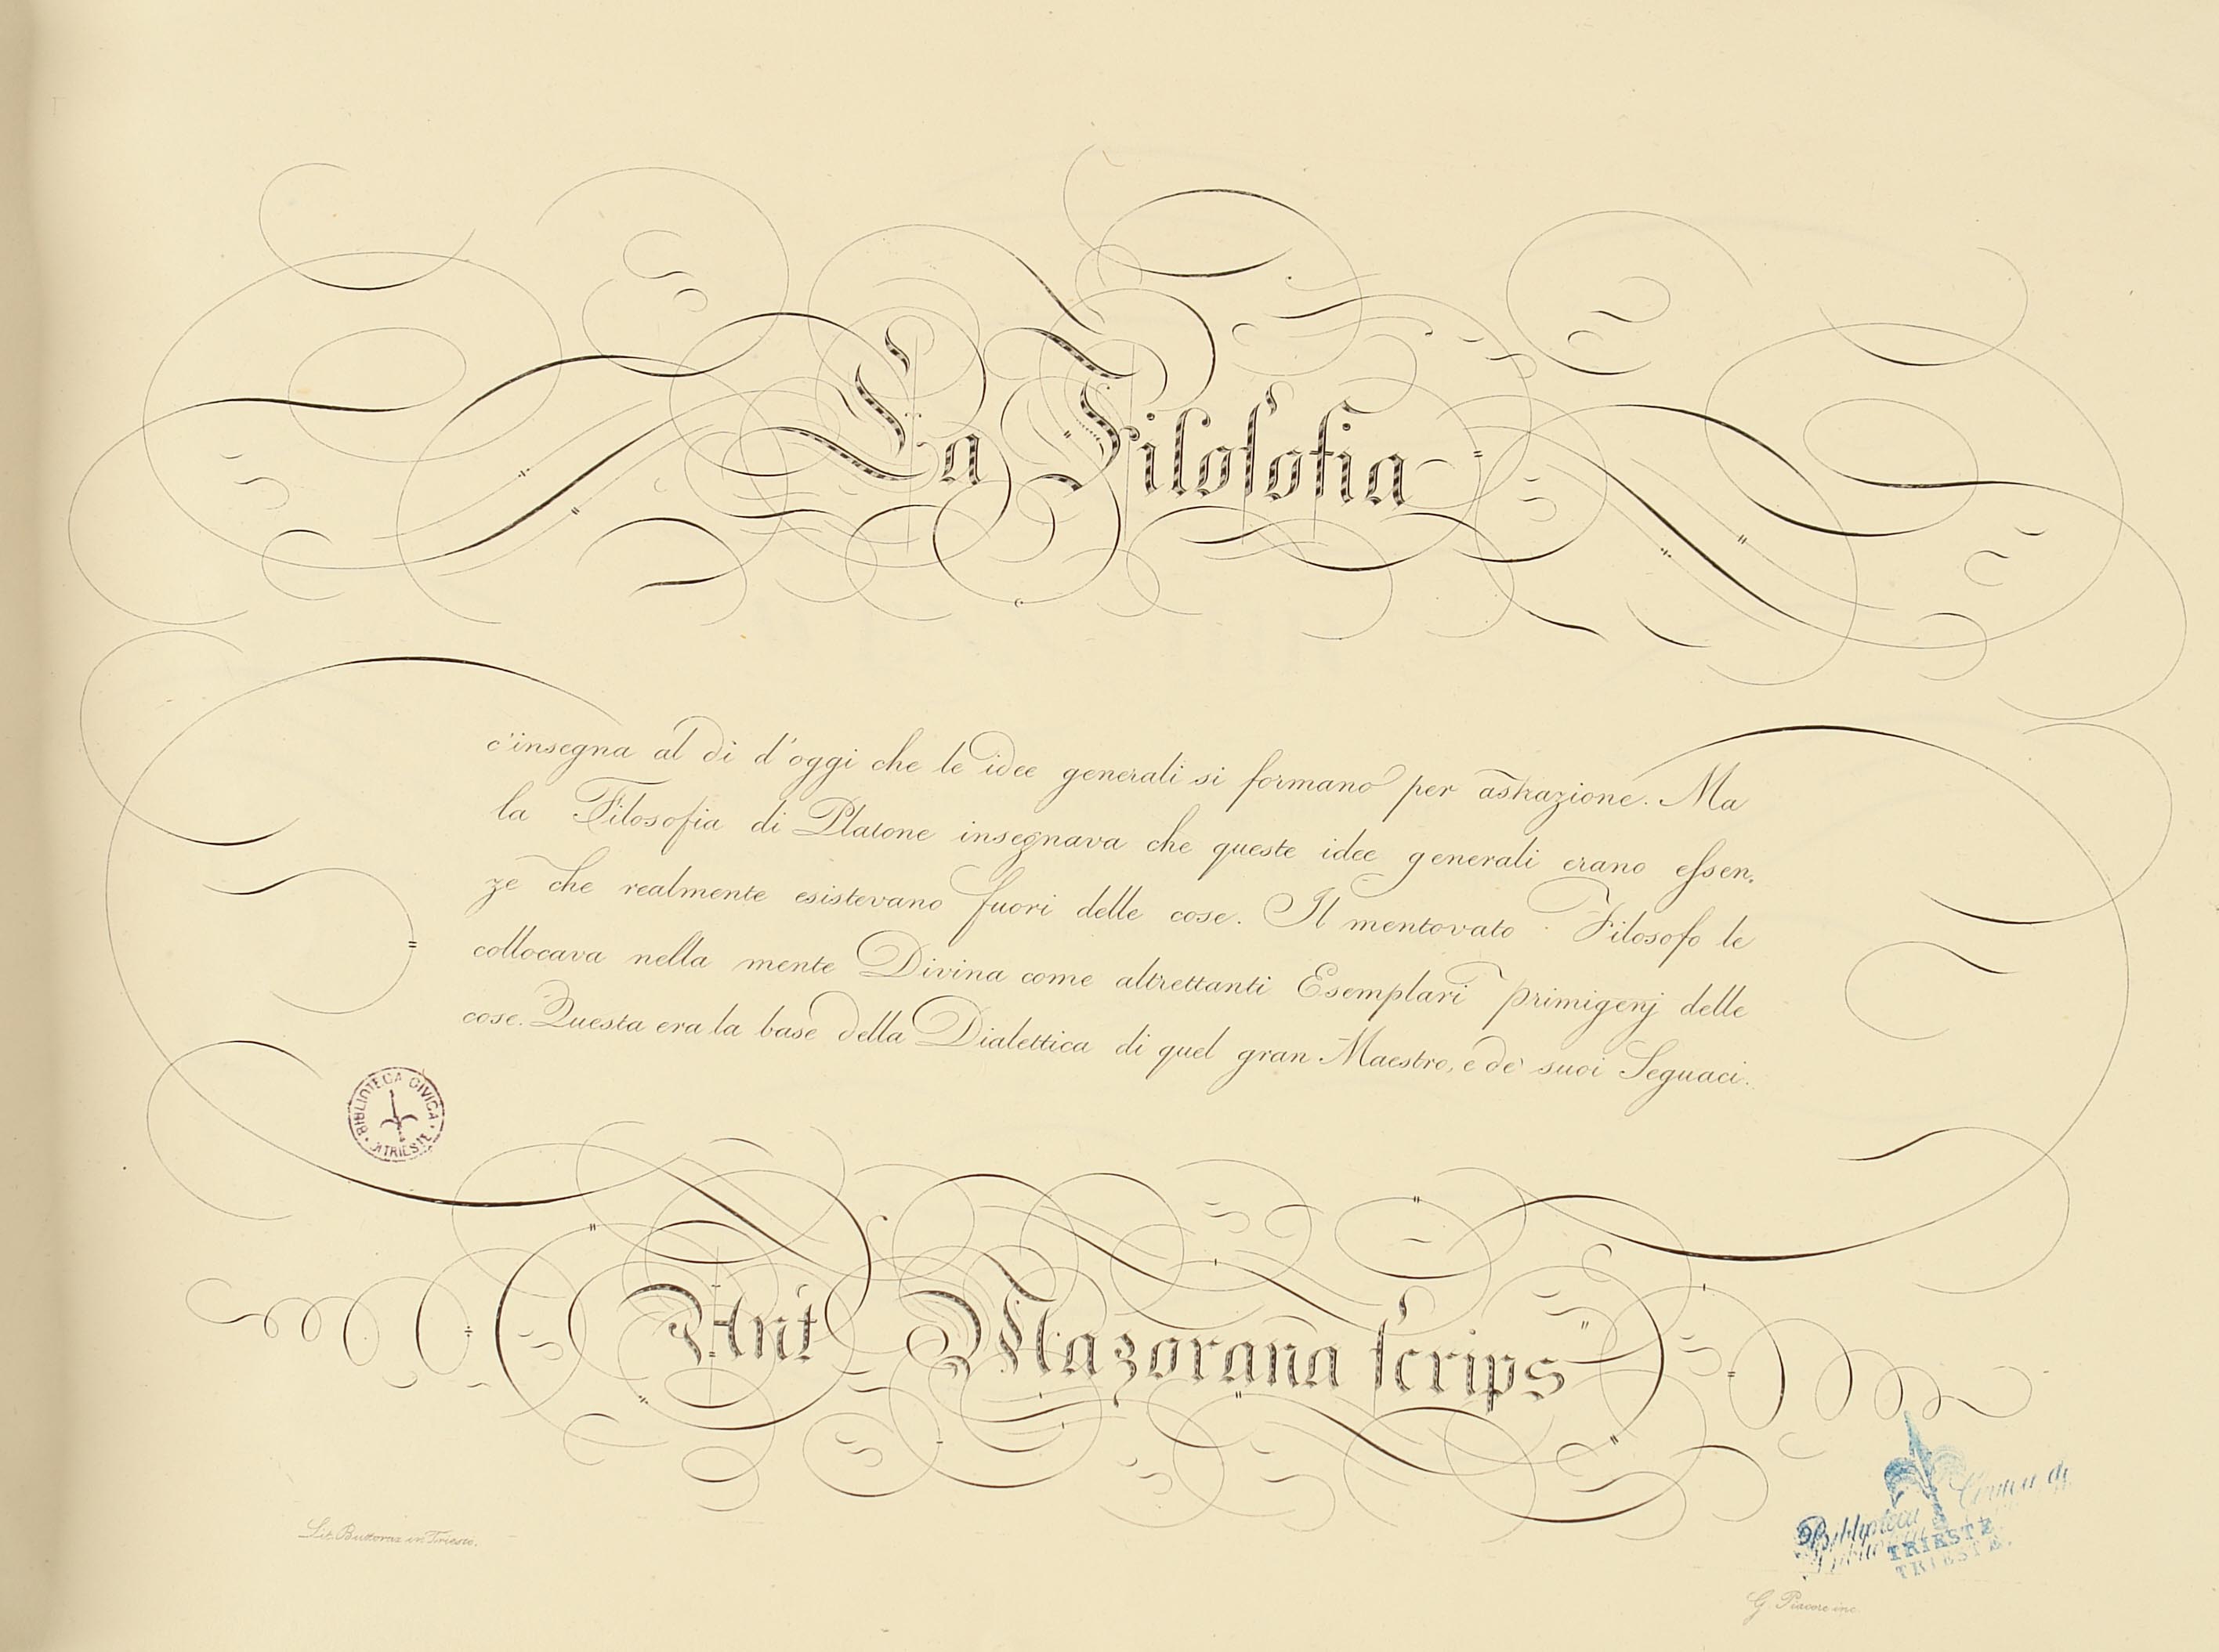 La Filosofia
c'insegna al dì d'oggi che le idee generali si formano per astrazione. Ma
la Filosofia di Platone insegnava che queste idee generali erano essen,
ze che realmente esistevano fuori delle cose. Il mentovato Filosofo le
collocava nella mente Divina come altrettanti Esemplari primigenj delle
cose. Questa era la base della Dialettica di quel gran Maestro, e de' suoi Seguaci.
BIBLIOTECA CIVICA
TRIESTE
Ant Mazorana scrips
Lit. Buttoraz in Trieste.
Biblioteca Civica di
TRIESTE
TRIESTE
G. Piacere inc.